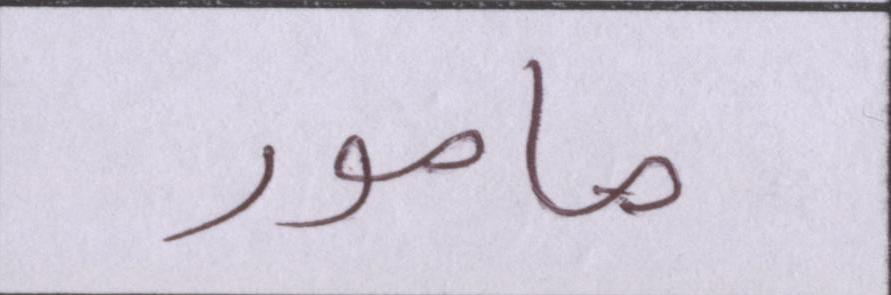 مامور